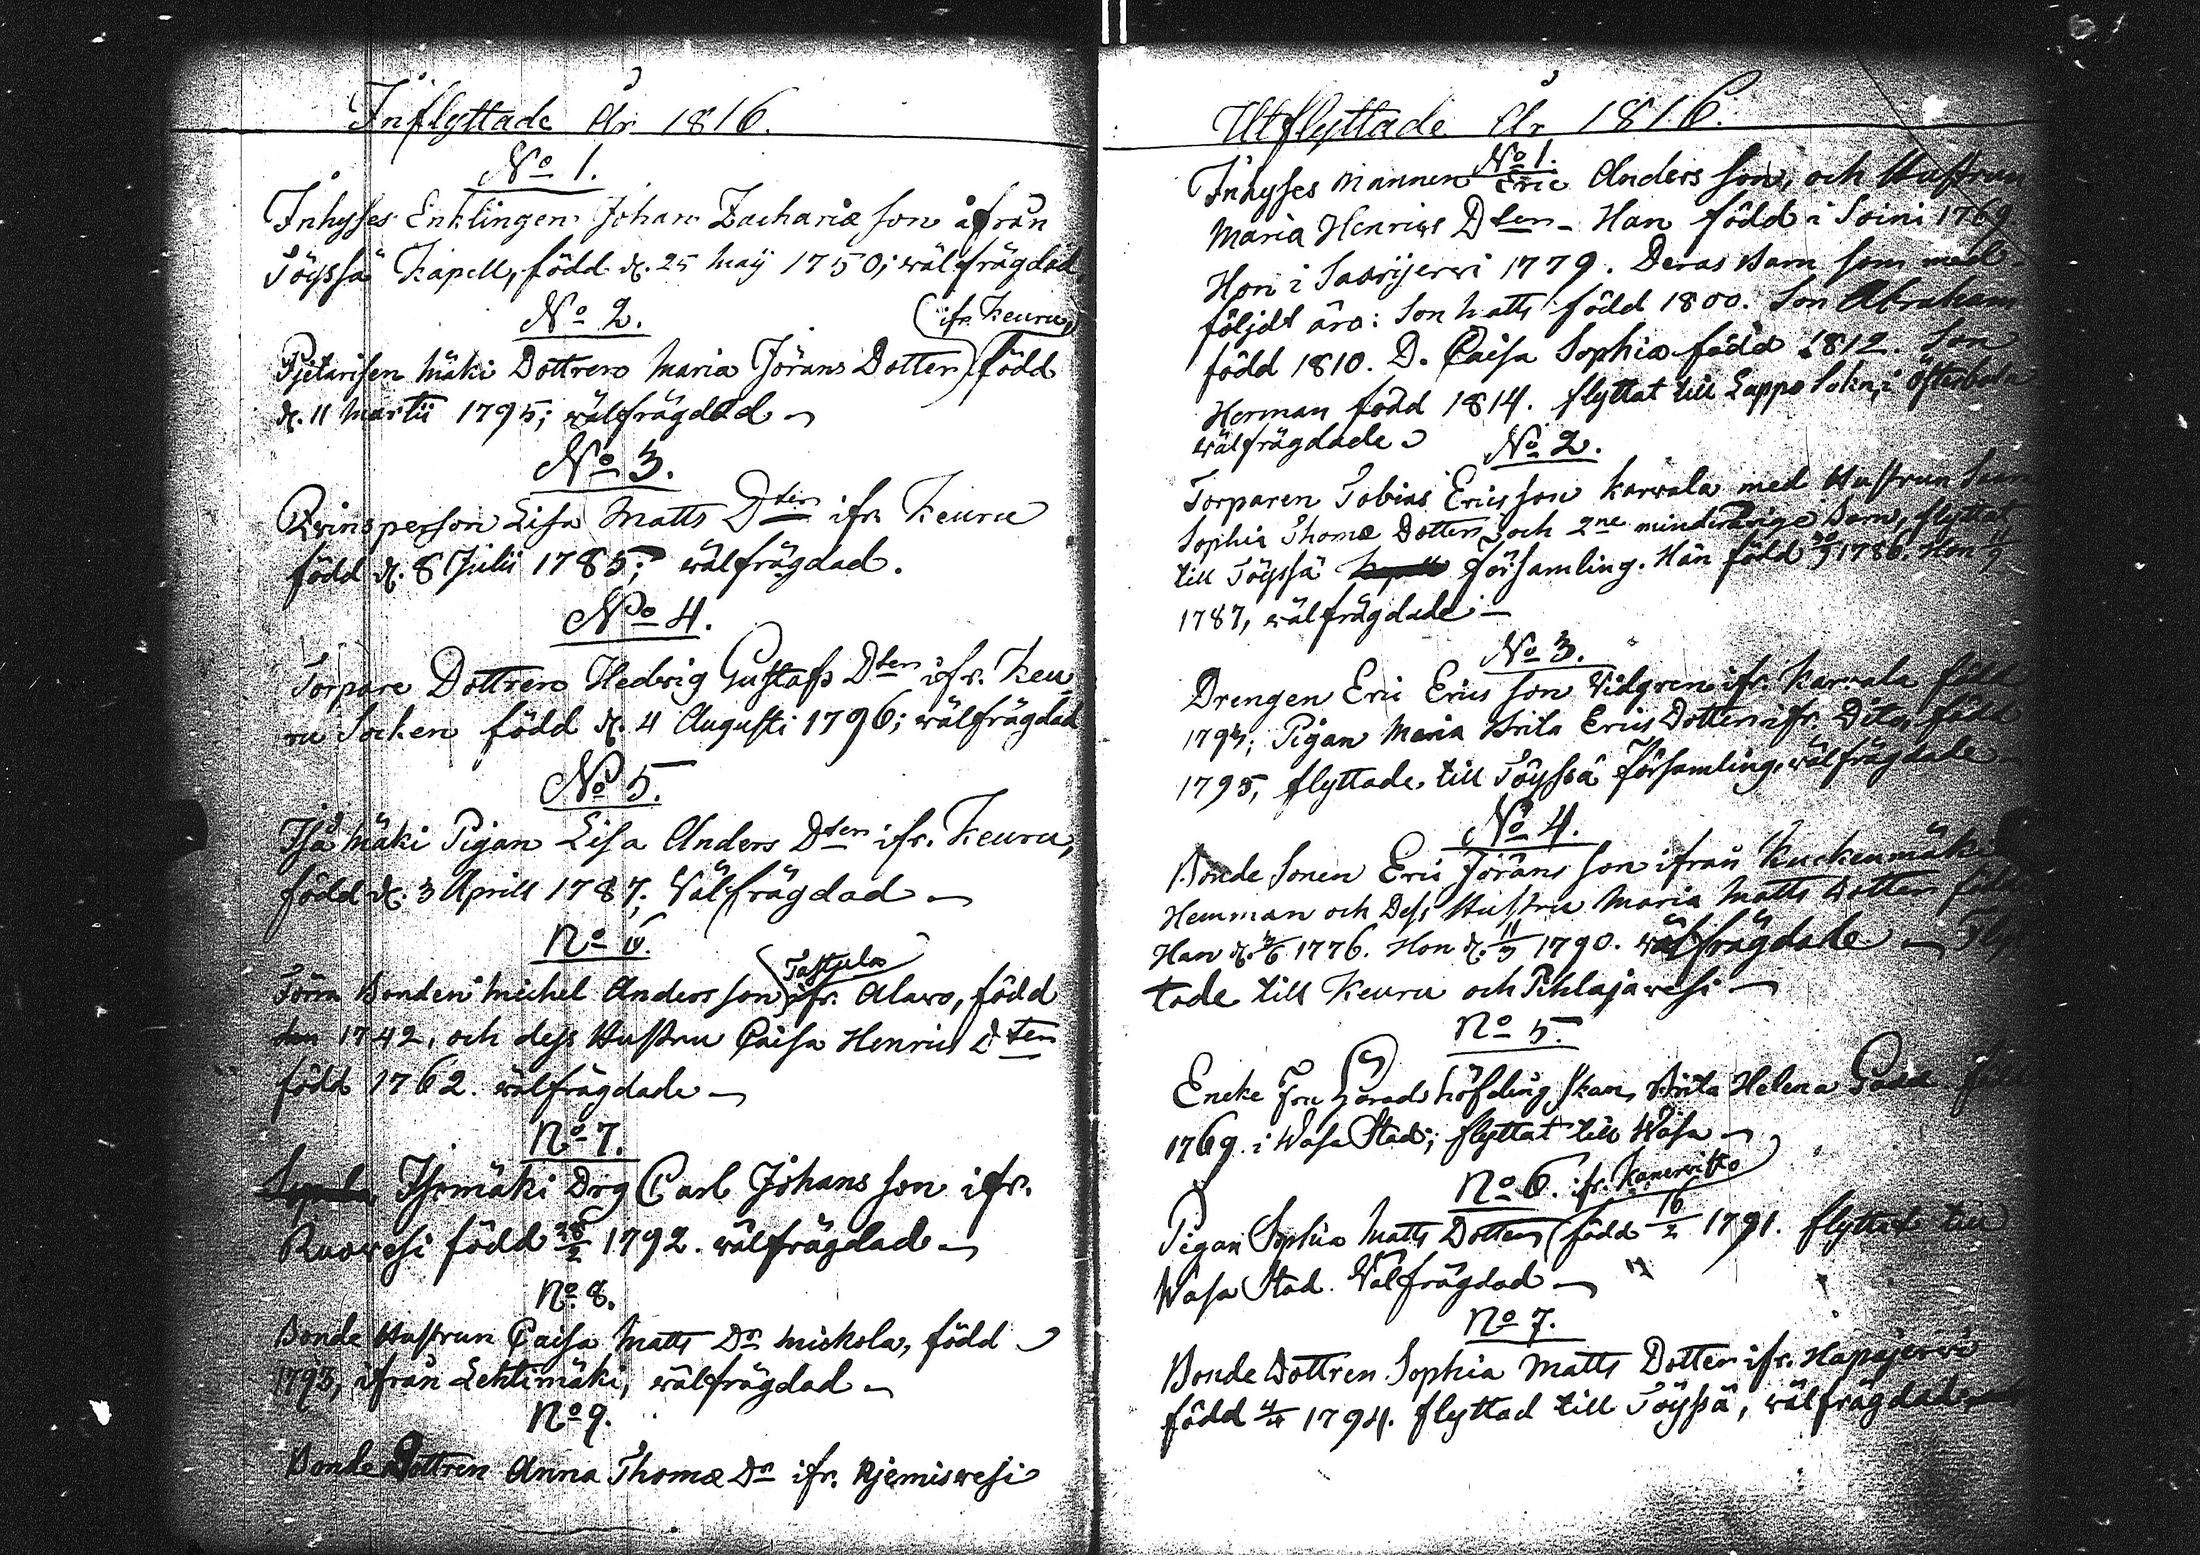 Inflyttade År 1816.
No 1.
Inhyses Enklingen Johan Zachariæ son ifrån
Töyssä Kapell, född d. 25 Maij 1750; wälfrägdad
No 2.
(ifr. Keuru)
Pjetarisen Mäki Dottren Maria Jörans Dotter född
d. 11 Martii 1795; wälfrägdad
No 3.
Qvinsperson Lisa Matts Dter ifr. Keuru
född d. 8 Julii 1785; wälfrägdad.
No 4.
Torpare Dottren Hedvig Gustafs Dter ifr. Keu
ru Socken född d. 4 Augusti 1796; wälfrägdad
No 5.
Isä Mäki Pigan Lisa Anders Dter ifr. Keuru,
född d. 3 Aprill 1787; Välfrägdad
No 6.
Bonden Michel Andersson ifr. Alavo, född
1742, och dess Hustru Caisa Henrics Dter
född 1762. wälfrägdade
No 7.
Isomäki Drg Carl Johans son ifr.
Ruovesi född 28/2 1792. wälfrägdad
No 8.
Bonde Hustrun Caisa Matts Dr Mickola, född
1793, ifrån Lehtimäki, wälfrägdad
No 9.
Bonde Dottren Anna Thomæ Dr ifr. Njemisvesi
Utflyttade År 1816.
No 1.
Inhyses Mannen Eric Anders son, och Hustrun
Maria Henrics Dter Han född i Soini 1769
Hon i Saarijervi 1779. Deras Barn som med
följdt äro: Son Matts född 1800. Son Abraham
född 1810. D. Caisa Sophia född 1812. Son
Herman född 1814. flyttat till Lappo Sokn i Österbotn
wälfrägdade
No 2.
Torparen Tobias Ericsson Karvala med Hustrun
Sophia Thomæ Dotter och 2ne minderårige Barn, flyttat
till Töyssä församling. Han född 1786. Hon
1787, wälfrägdade
No 3.
Drengen Eric Erics son Vidgren ifr. Karvala född
Pigan Maria Brita Erics Dotter ifr. Dito född
1795, flyttade till Töyssä församling, wälfrägdade
No 4.
Bonde Sonen Eric Jörans son ifrån Kuckenmäki
Hemman och Dess Hustru Maria Matts Dotter född
Han d. 1776. Hon d. 11/3 1790. wälfrägdade Flyt
tade till Keuru och Pihlajavesi
No 5.
Encke Fru Häradshöfdingskan, Brita Helena Gadd född
1769. i Wasa Stad; flyttat till Wasa
No 6. ifr. Kanervisto
Pigan Sophia Matts Dotter född 16/2 1791. flyttad till
Wasa Stad. Välfrägdad
No 7.
Bonde Dottren Sophia Matts Dotter ifr. Hapajervi
född 1794. flyttad till Töyssä, wälfrägdad